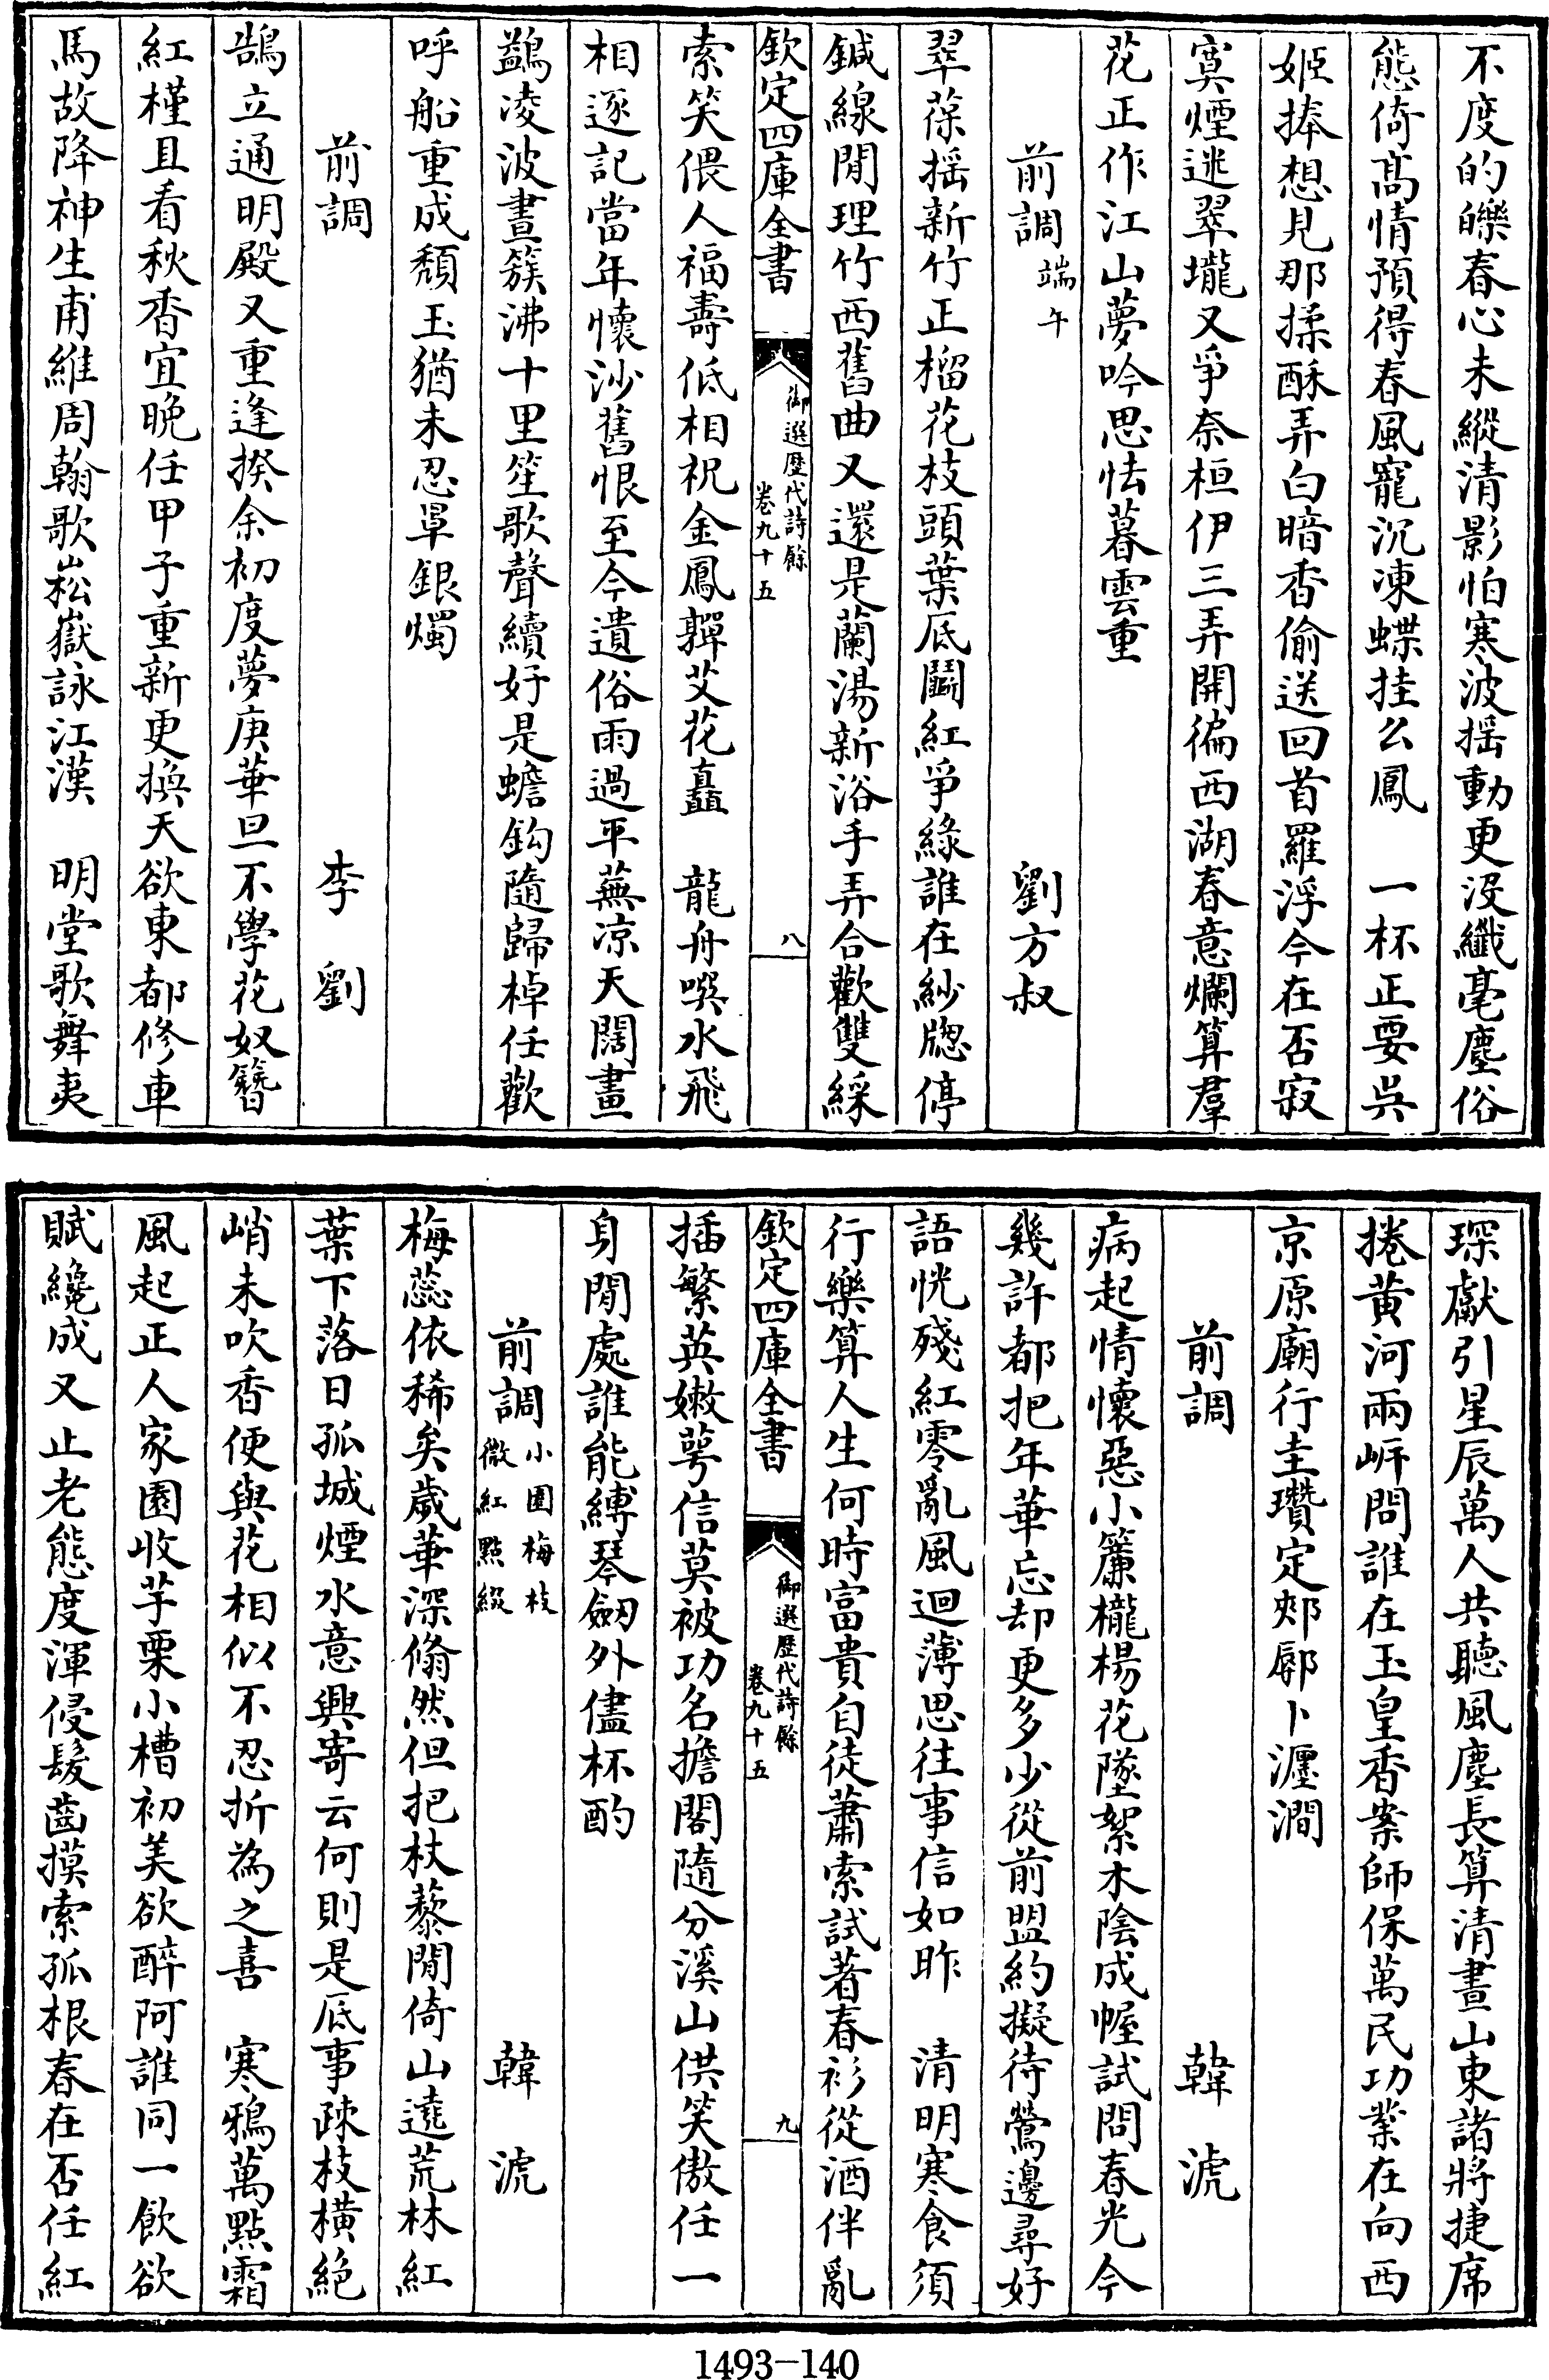 不度的皪春心未縱清影怕寒波揺動更沒纖毫塵俗
態倚髙情預得春風寵沉凍蝶挂么鳳　一杯正要呉
姬捧想見那揉酥弄白暗香偷送回首羅浮今在否寂
寞煙迷翠壠又爭奈桓伊三弄開徧西湖春意爛算羣
花正作江山夢吟思怯暮雲重
前調端午　劉方叔
翠葆揺新竹正榴花枝頭葉底鬭紅爭綠誰在紗牕停
鍼線閒理竹西舊曲又還是蘭湯新浴手弄合歡雙綵
欽定四庫全書　御選歴代詩餘　卷九十五　八
索笑偎人福壽低相祝金鳳嚲艾花矗　龍舟噀水飛
相逐記當年懷沙舊恨至今遺俗雨過平蕪凉天闊畫
鷁凌波晝簇沸十里笙歌聲續好是蟾鈎隨歸棹任歡
呼船重成頽玉猶未忍罩銀燭
前調　李劉
鵠立通明殿又重逢揆余初度夢庚華旦不學花奴簪
紅槿且看秋香宜晚任甲子重新更換天欲東都修車
馬故降神生甫維周翰歌崧嶽詠江漢　明堂歌舞夷
琛獻引星辰萬人共聽風塵長算清晝山東諸將捷席
捲黄河兩岍問誰在玉皇香案師保萬民功業在向西
京原廟行圭瓚定郟鄏卜瀍澗
前調　韓淲
病起情懷惡小簾櫳楊花墜絮木陰成幄試問春光今
幾許都把年華忘却更多少從前盟約擬待鶯邊尋好
語恍殘紅零亂風迴薄思往事信如昨　清明寒食須
行樂算人生何時富貴自徒蕭索試著春衫從酒伴亂
欽定四庫全書　御選歴代詩餘　卷九十五　九
插繁英嫩萼信莫被功名擔閣隨分溪山供笑傲任一
身閒處誰能縛琴劒外儘杯酌
前調小園梅枝微紅點綴　韓淲
梅蕊依稀矣歲華深翛然但把杖藜閒倚山遶荒林紅
葉下落日孤城煙水意興寄云何則是底事疎枝横絶
峭未吹香便與花相似不忍折為之喜　寒鴉萬點霜
風起正人家園收芋栗小槽初美欲醉阿誰同一飲欲
賦纔成又止老態度渾侵髮齒摸索孤根春在否任紅
1493-140